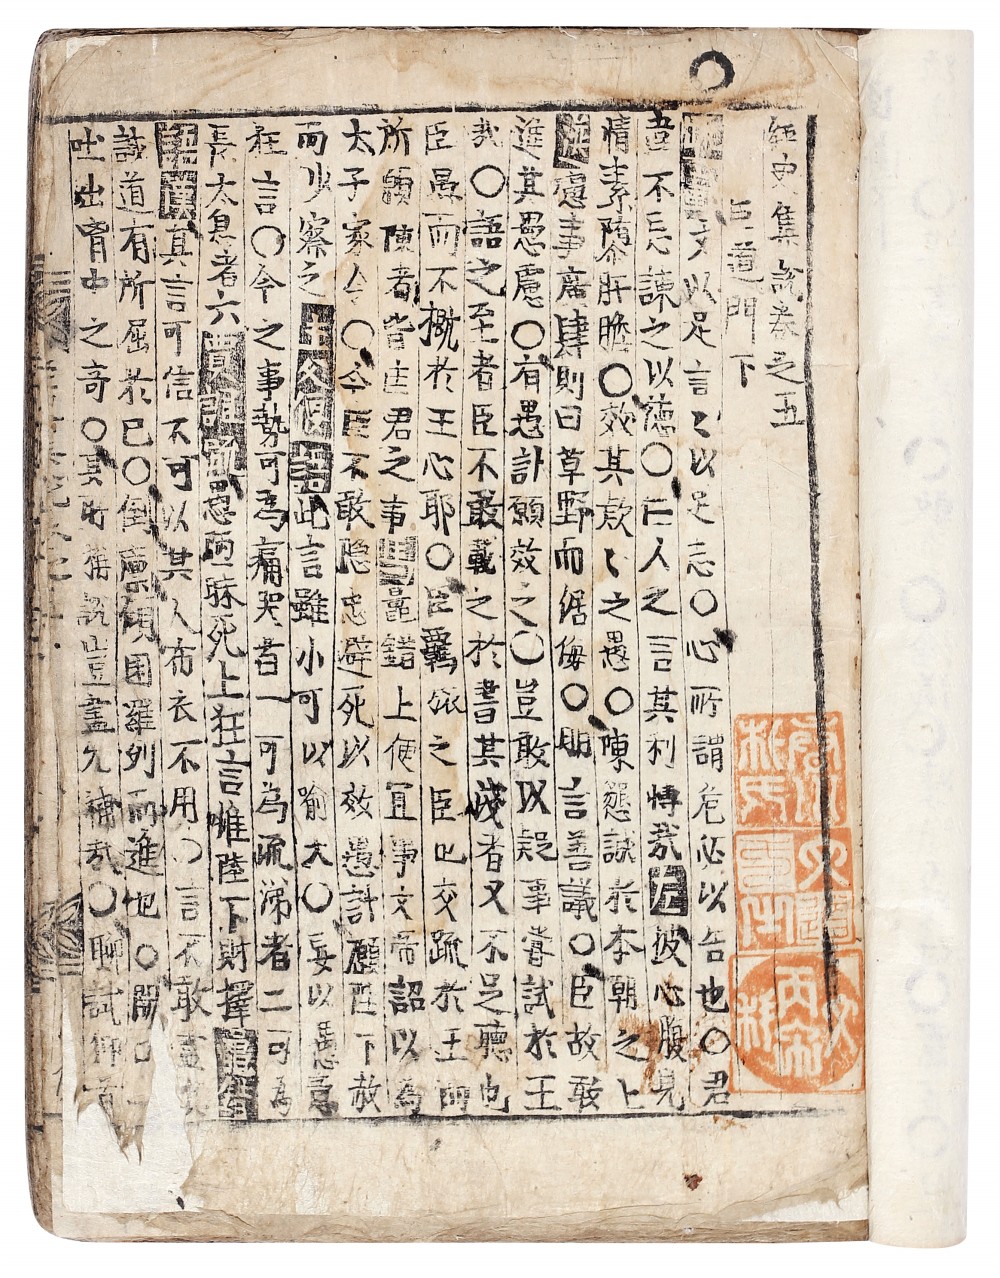 經史集說卷之五
臣道門下
文以足言言以足志〇心所謂危必以告也〇君
不忘諫之以德〇仁人之言其利博哉左披心腹見
情素墮肝膽〇效其款款之愚〇陳懇誠於本朝之上
慮事廣肆則曰草野而倨侮〇朋言善議〇臣故敢
進其愚慮〇有愚計願效之〇豈敢以疑事嘗試於王
哉〇語之至者臣不敢載之於書其淺者又不足聽也
臣愚而不概於王心耶〇臣羈旅之臣也交疏於王而
所願陳者皆匡君之事 鼂錯上便宜事文帝詔以爲
太子家令〇今臣不敢隱忠避死以效愚計願陛下赦
而少察之 此言雖小可以喻大〇妄以愚意
狂言〇今之事勢可爲痛哭者一可爲流涕者二可爲
長太息者六賈誼 愚臣昧死上狂言唯陛下財擇
其言可信不可以其人布衣不用〇言不敢盡
識道有所屈於己〇倒廩傾囷羅列而進也〇開口
吐出胷中之奇〇其所稱說豈盡無補哉〇聊試